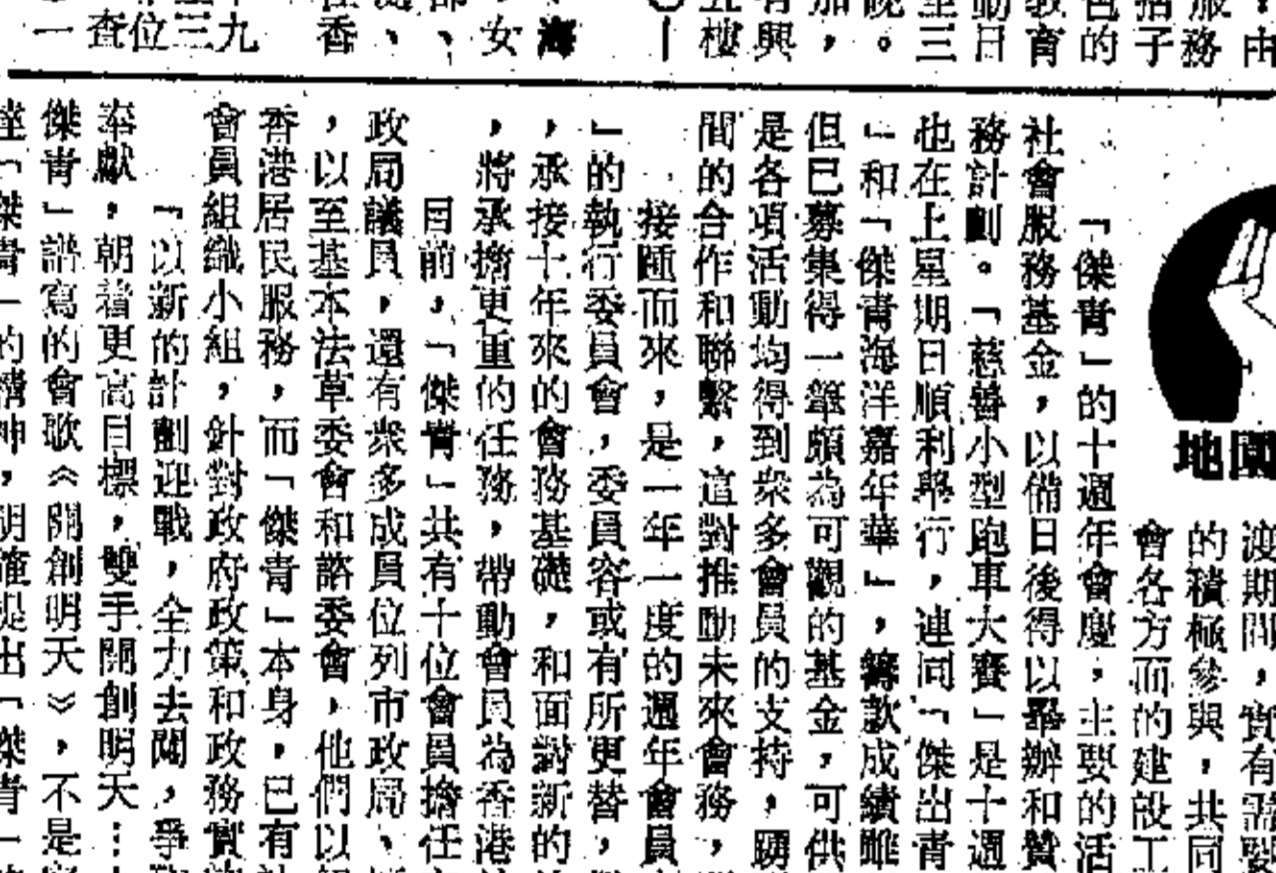 由
服務
括子
色的
教育
動日
至三
晚。
加，
有興
五樓
｜
海
女
、
、
香
九
三
位
查
一
園地
渡期間，實有需要
的積極參與，共同
會各方面的建設工
「傑青」的十週年會慶，主要的活
社會服務基金，以備日後得以舉辦和贊
務計劃。「慈善小型跑車大賽」是十週
也在上星期日順利舉行，連同「傑出青
」和「傑青海洋嘉年華」，籌款成績雖
但已募集得一筆頗為可觀的基金，可供
是各項活動均得到衆多會員的支持，踴
間的合作和聯繫，這對推動未來會務，
接踵而來，是一年一度的週年會員
」的執行委員會，委員容或有所更替，
，承接十年來的會務基礎，和面對新的
，將承擔更重的任務，帶動會員為香港
目前，「傑青」共有十位會員擔任
政局議員，還有衆多成員位列市政局、
，以至基本法草委會和諮委會，他們以
香港居民服務，而「傑青」本身，已有
會員組織小組，針對政府政策和政務實
「以新的計劃迎戰，全力去闖，爭
奉獻，朝着更高目標，雙手開創明天…
傑青」譜寫的會歌《開創明天》，不是
達「傑青」的精神，明確提出「傑青」